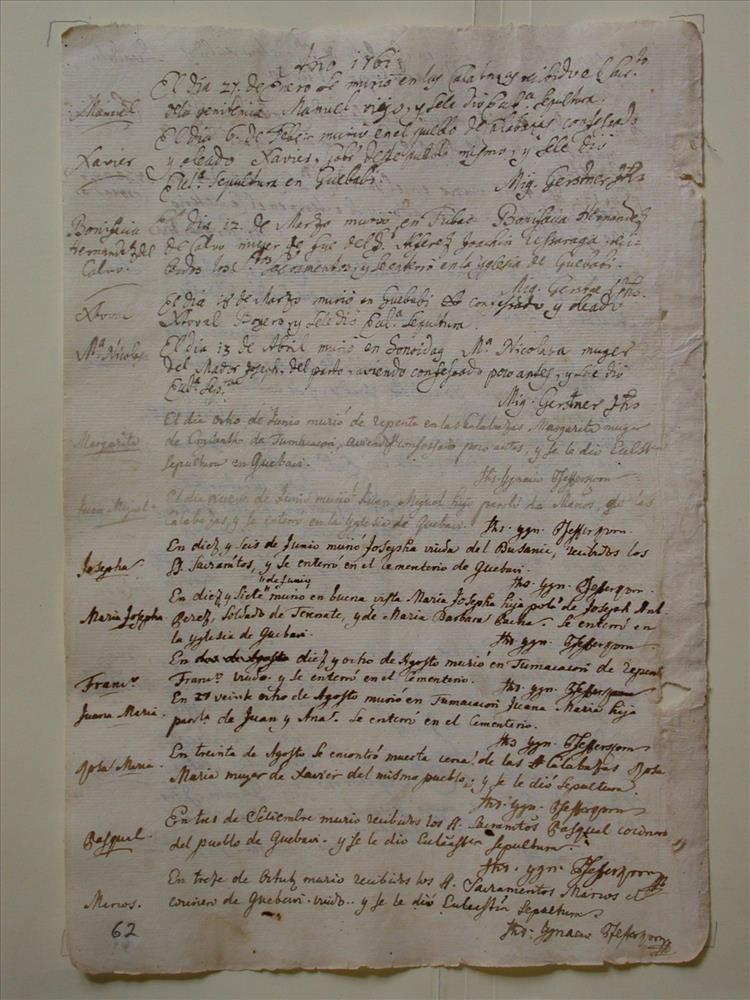 Año 1761
Manuel
El dia 27. de Enero se murió en las Calabazas recibido el Sac.to
de la penitencia Manuel viejo, y se le dió Ecl.a Sepultura.
Xavier
El dia 6. de murió en el pueblo de Calabazas confesado
y oleado Xavier, deste pueblo mismo, y se le dió
Ecl.a Sepultura en Guebabi.
Mig. Gerstner Jhs
Bonifacia
Hernandez del
Calvo.
El dia 12. de Marzo murió en Tubac Bonifacia Hernandez
del Calvo muger que fue del Alferez Joachin
todos los S.tos Sacramentos, y se enterró en la yglesia de Guebabi.
Mig. Gerstner Jhs.
Xtoval
El dia 18 de Marzo murió en Guebabi confesado y oleado
Xtoval Romero, y se le dió Ecl.a Sepultura.
M.a Nicolasa
El dia 13 de Abril murió en Sonoidag M.a Nicolasa muger
del Mador Joseph, del parto aviendo confesado poco antes, y se le dió
Ecl.a Sep.ra
Mig. Gerstner Jhs
Margarita
El dia ocho de Junio murió de repente en las Calabazas Margarita muger
de de Tumacacori, aviendo confessado poco antes, y se le dio
Sepultura en Guebavi.
Jhs. Ygnacio Pfefferkorn
Juan Miguel.
El dia nueve de Junio murió Juan Miguel hijo de de las
Calabazas, y se enterró en la Yglesia de Guebavi.
Jhs. Ygn. Pfefferkorn.
Josepha
En diez y seis de Junio murió Josepha viuda del Busanic, recibidos los
SS. Sacram.tos, y se enterró en el Cementerio de Guebavi.
Jhs. ygn. Pfefferkorn.
Maria Josepha
de Junio
En diez y siete murió en buena vista Maria Josepha hija de Joseph Ant.
Perez, Soldado de Terenate, y de Maria Barbara. Se enterró en
la yglesia de Guebavi.
Jhs ygn. Pfefferkorn
Fran.co
En dos de Agosto diez y ocho de Agosto murió en Tumacacori de repente
Fran.co viudo. y se enterró en el Cementerio.
Jhs. ygn. Pfefferkorn
Juana Maria.
En veinte ocho de Agosto murió en Tumacacori Juana Maria hija
de Juan y Ana. Se enterró en el Cementerio.
Jhs ygn. Pfefferkorn
Rosa Maria.
En treinta de Agosto se encontró muerta cerca de las Calabazas Rosa
Maria muger de Xavier del mismo pueblo, y se le dió Sepultura.
Jhs. ygn. Pfefferkorn
Pasqual.
En tres de Setiembre murió recibidos los SS. Sacramentos Pasqual
del pueblo de Guebavi. y se le dio Sepultura.
Jhs. ygn. Pfefferkorn
Marcos.
En treze de murió recibidos los SS. Sacramentos Marcos el
de Guebavi. viudo. y se le dió Sepultura
Jhs. Ygnacio Pfefferkorn
62